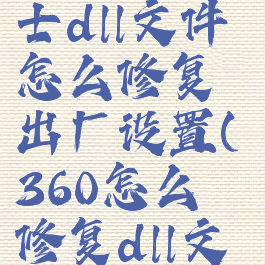 士dll文件
怎么修复
出厂设置(
360怎么
修复dll文